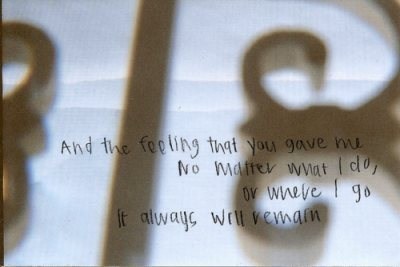 And the feeling that you gave me
No matter what I do,
or where I go
It always will remain